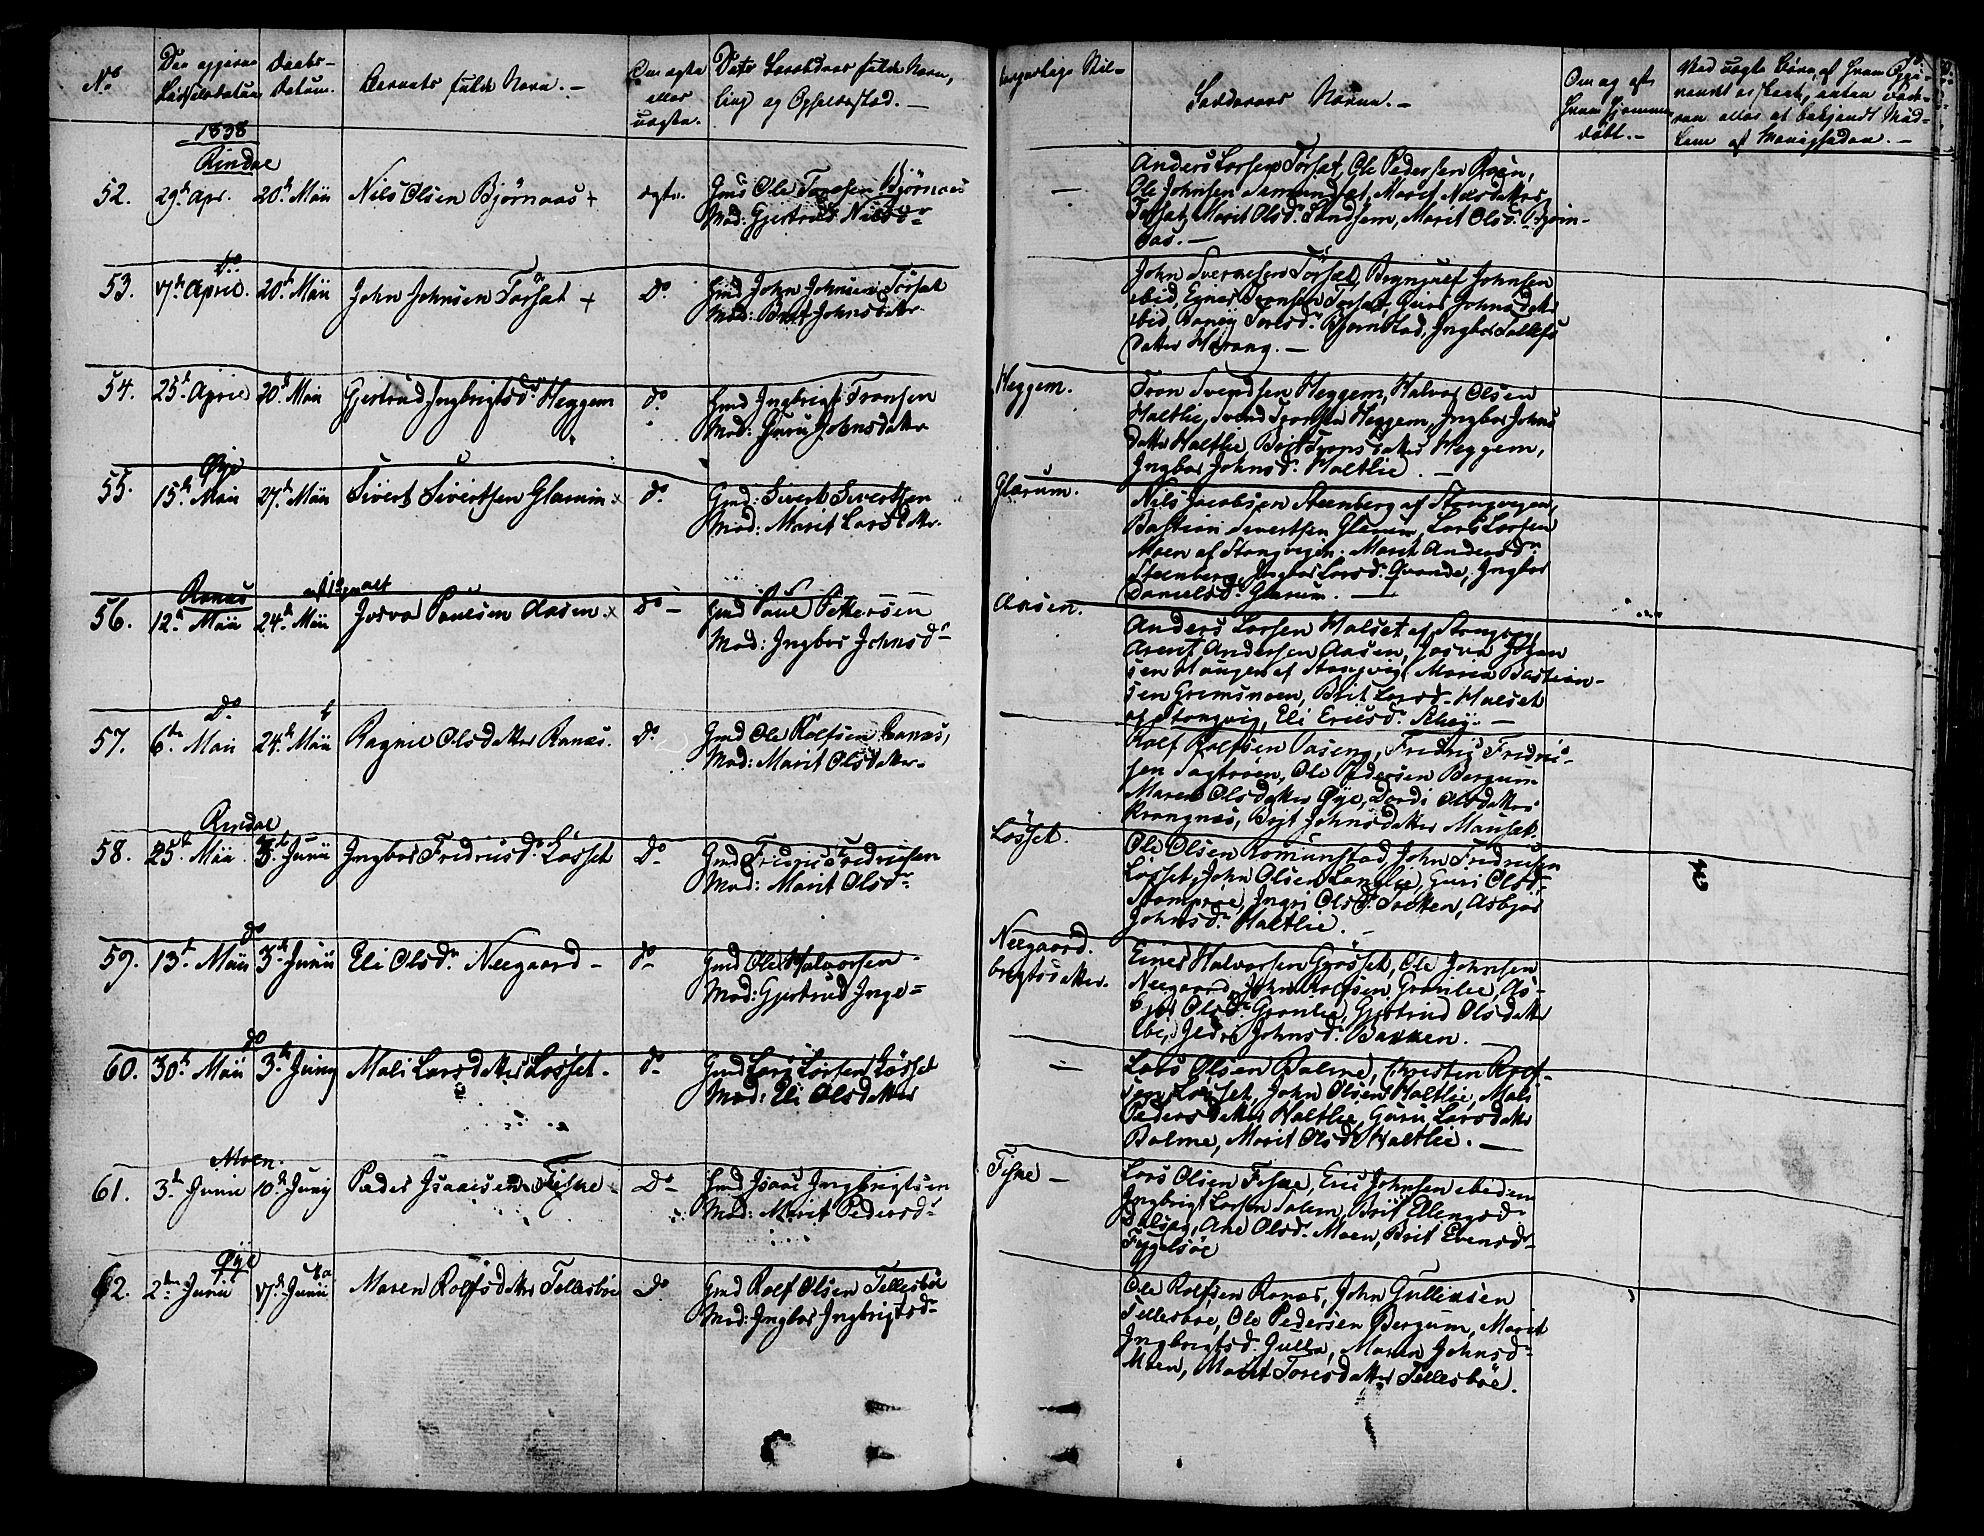 No
Den opgivne
Fødselsdatum
Daabs-
datum.
Barnets fulde Navn. -
Om ægte
eller
uægte.
Dets Forældres fulde Navn,
ling og Opholdssted. -
borgerlige Stil-
Faddernes Navne. -
Om og af
hvem hjemme-
døbt. -
1838
Rindal
52. 29de Apr. 20de Maii Nils Olsen Bjørnaas + ægte. Gmd Ole Tronsen Bjørnaas
Mod: Gjertrud Nilsdr
Anders Larsen Torset, Ole Pedersen Roen,
Ole Johnsen Romundset, Marit Nilsdatter
Torset, Marit Olsdr Landsem, Marit Olsdr Bjørn-
aas. -
Do
53. 17de April. 20de Maii John Johnsen Torset + Do Gmd John Johnsen Torset
Mod: Brit Johnsdatter.
John Sversesen Torset, Brynjulf Johnsen
ibid, Egner Tronsen Torset, Guri Johnsdatter
ibid, Toresdr Bjørnstad, Ingbor Tollefs
datter Harang. -
54. 25de April 20de Maii Gjertrud Ingbrigtsdr Heggem do Gmd Ingbrigt Tronsen
Mod: Guru Johnsdatter
Heggem.
Tron Svendsen Heggem, Halvor Olsen
Haltlie, Svend Tronsen Heggem, Ingbor Johns
datter Haltlie, Brit Toresdatter Heggem,
Ingbor Johnsdr Haltlie. -
Øye
55. 15de Maii 27de Maii Sivert Sivertsen Glærum × do Gmd: Sivert Sivertsen
Mod: Marit Larsdatter.
Glærum.
Nils Jacobsen Steenberg af Stangvigen,
Bastian Sivertsen Glærum, Lars Larsen
Moen af Stangvigen. Marit Andersdr
Steenberg, Ingbor Larsdr Qvande, Ingbor
Danielsdr Glærum. -
Ranæs
56. 12te Maii 24de Maii Josva Paulsen Aasen × do - Gmd Paul Pettersen
Mod: Ingbor Johnsdr
Aasen.
Anders Larsen Halset af Stangvig,
Arent Andersen Aasen, Josva Johan
sen Haugen af Stangvig, Maria Bastian-
sen Grimsmoen, Brit Larsdr Halset
af Stangvig, Eli Ericsdr Schey. -
Do
57. 6te Maii 24de Maii Ragnil Olsdatter Ranæs. Do Gmd Ole Rolfsen Ranæs,
Mod: Marit Olsdatter.
Rolf Rolfsen Vaseng, Fridric Fridric-
sen Sagtrøen, Ole Pedersen Bergum
Maren Olsdatter Øye, Dordi Olsdatter
Krangnæs, Brit Johnsdatter Mauset.
Rindal
58. 25de Maii 3de Junii Ingbor Fridricsdr Løsset Do Gmd Fridric Fridricsen
Mod: Marit Olsdr
Løsset.
Ole Olsen Romunstad, John Fridricsen
Løsset, John Olsen Langlie, Guri Olsdr
Stomprøe, Ingri Olsdr Bakken, Asbjør
Johnsdr Haltlie. -
do
59. 13de Maii 3de Junii Eli Olsdr Neegaard - do Gmd Ole Halvorsen
Mod: Gjertrud Inge=
Neegaard.
brigtsdatter.
Einer Halvorsen Grøsset, Ole Johnsen
Neegaard, John Rolfsen Grønlie, As-
bjør Olsdr Grønlie, Gjertrud Olsdatter
ibid, Johnsdr Bakken. -
do
60. 30de Maii 3de Junij Mali Larsdatter Løsset. do Gmd Lars Larsen Løsset
Mod: Eli Olsdatter
Lars Olsen Bolme, Christen Rolf-
sen Løsset, John Olsen Haltlie, Mali
Pedersdatter Haltlie, Guru Larsdatter
Bolme, Marit Olsdr Haltlie. -
Moen.
61. 3de Junii 10de Junij Peder Isaacsen Fiske - Do Gmd Isaac Ingbrigtsen
Mod: Marit Pedersdr
Fiske -
Lars Olsen Fiske, Eric Johnsen ibidem
Ingbrigt Larsen Solem, Brit Ellingsdr
Dalseg, Ane Olsdr Moen, Brit Evensdr
Fuglsøe
Øye
62. 2den Junii 17de Junii Maren Rolfsdatter Tellesbøe Do Gmd Rolf Olsen Tellesbøe
Mod: Ingbor Ingbrigtsdr
Ole Rolfsen Ranæs, John Gulliksen
Tellesbøe, Ole Pedersen Bergum, Marit
Ingbrigtsdr Gulla, Maren Johnsdr
Moen, Marit Toresdatter Tellesbøe.